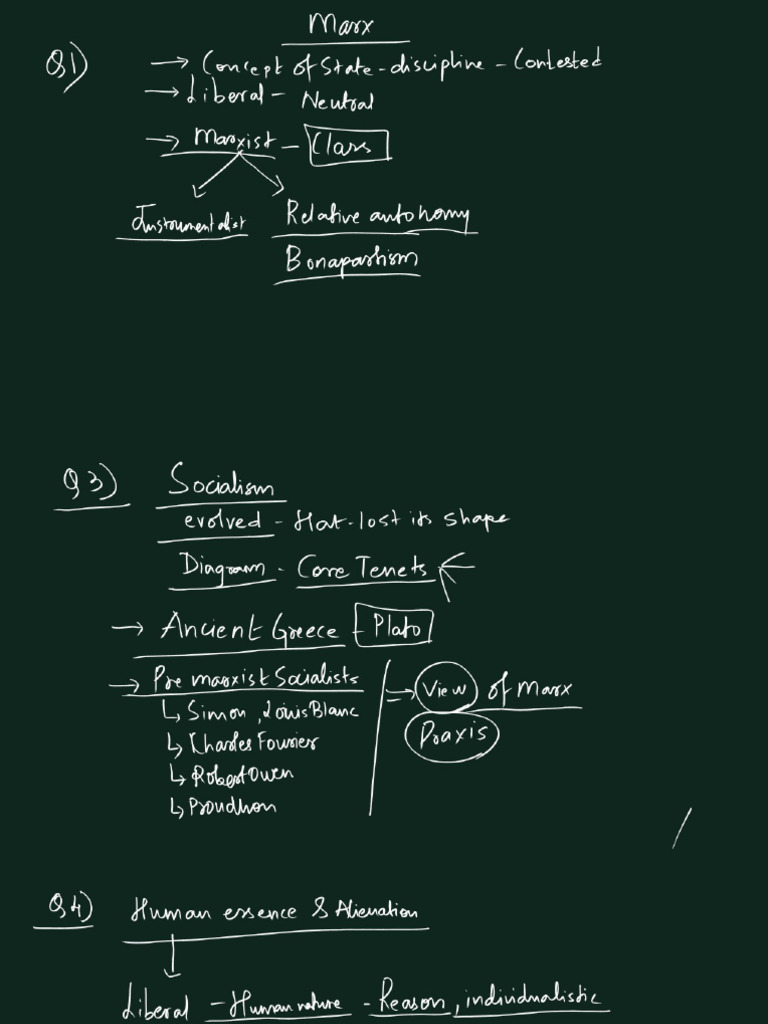 Marx
Q1) → Concept of State - discipline - Contested
→ Liberal - Neutral
→ Marxist - Class
Instrumentalist Relative autonomy
Bonapartism
Q3) Socialism
evolved - Hat - lost its shape
Diagram - Core Tenets
→ Ancient Greece - Plato
→ Pre marxist Socialists → View of Marx
↳ Simon, Louis Blanc Praxis
↳ Charles Fourier
↳ Robert Owen
↳ Proudhon
Q4) Human essence & Alienation
Liberal - Human nature - Reason, individualistic